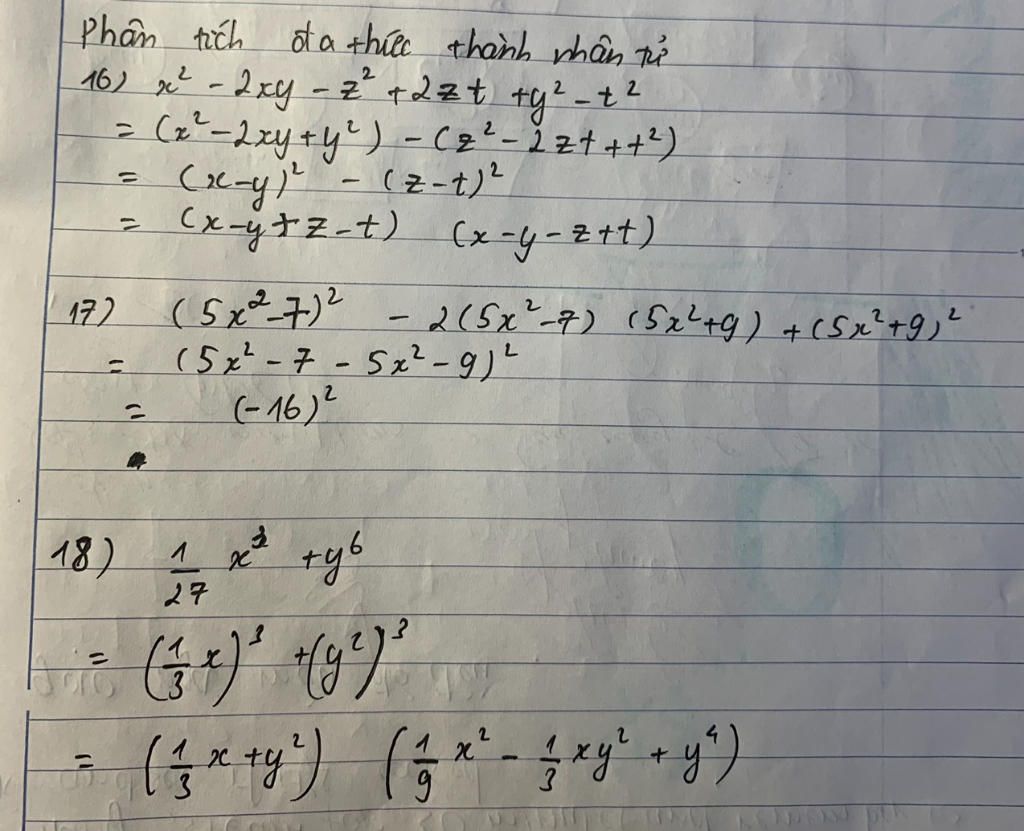 Phân tích đa thức thành nhân tử
16) x² - 2xy - z² + 2zt + y² - t²
= (x² - 2xy + y²) - (z² - 2zt + t²)
= (x-y)² - (z-t)²
= (x-y+z-t) (x-y-z+t)
17) (5x²-7)² - 2(5x²-7) (5x²+9) + (5x²+9)²
= (5x² - 7 - 5x² - 9)²
= (-16)²
18) 1/27 x³ + y⁶
= (1/3 x)³ + (y²)³
= (1/3 x + y²) (1/9 x² - 1/3 xy² + y⁴)